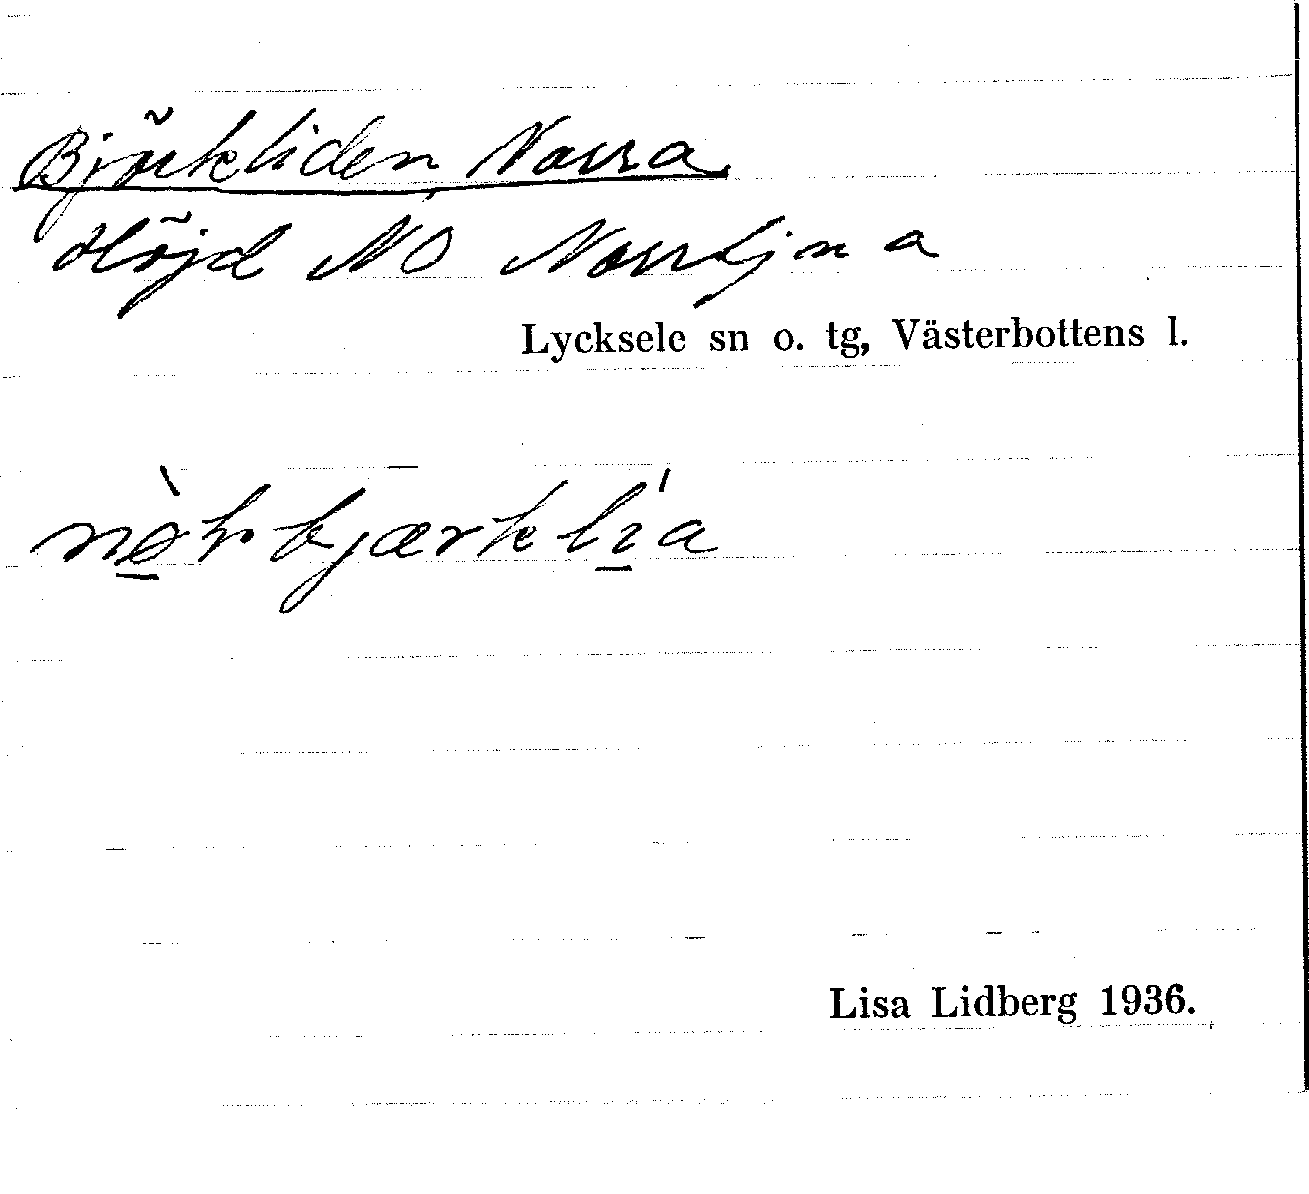 Björkliden, Norra
Höjd NO Norrtjna
Lycksele sn o. tg, Västerbottens l.
Lisa Lidberg 1936.